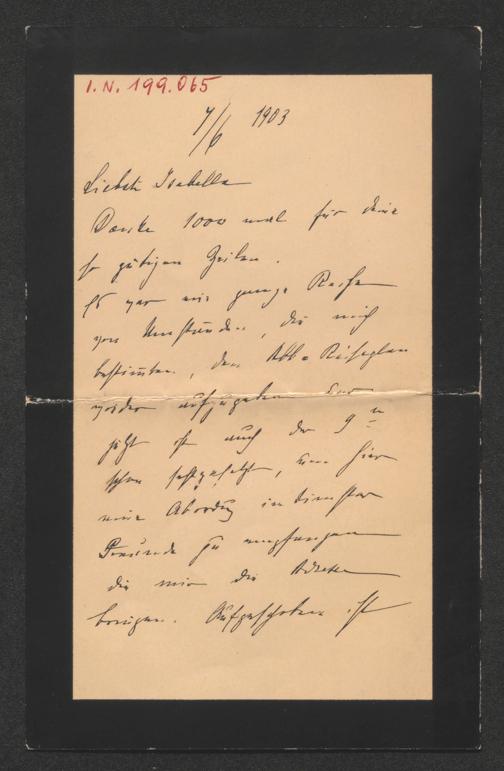 I.N. 199.065
7/6 1903
Liebste Isabella
Danke 1000 mal für deine
so gütigen Zeilen.
Es war eine ganze Reihe
von Umständen, die mich
bestimmten, den Reiseplan
wieder aufzugeben und
jetzt ist auch der 9te
schon festgesetzt, um hier
eine Abordng
Freunde zu empfangen
die mir die
bringen. Aufgeschoben ist